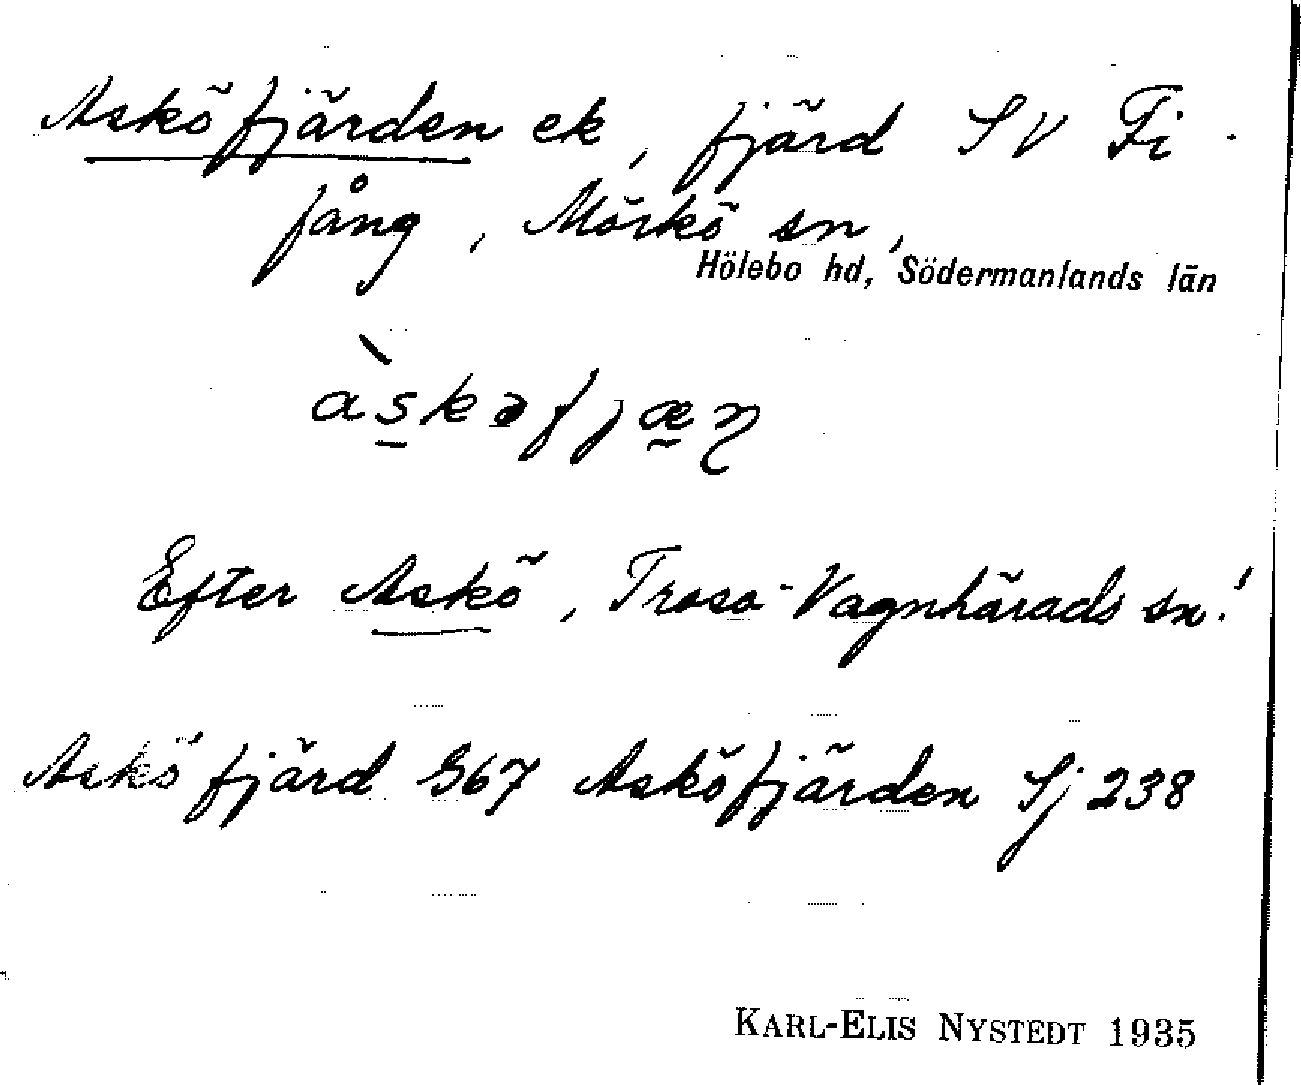 Asköfjärden ek, fjärd SV Fi-
fång, Mörkö sn,
Hölebo hd, Södermanlands län
àskəfjæɳ
Efter Askö, Trosa-Vagnhärads sn!
Askö fjärd G67 Asköfjärden Sj 238
KARL-ELIS NYSTEDT 1935